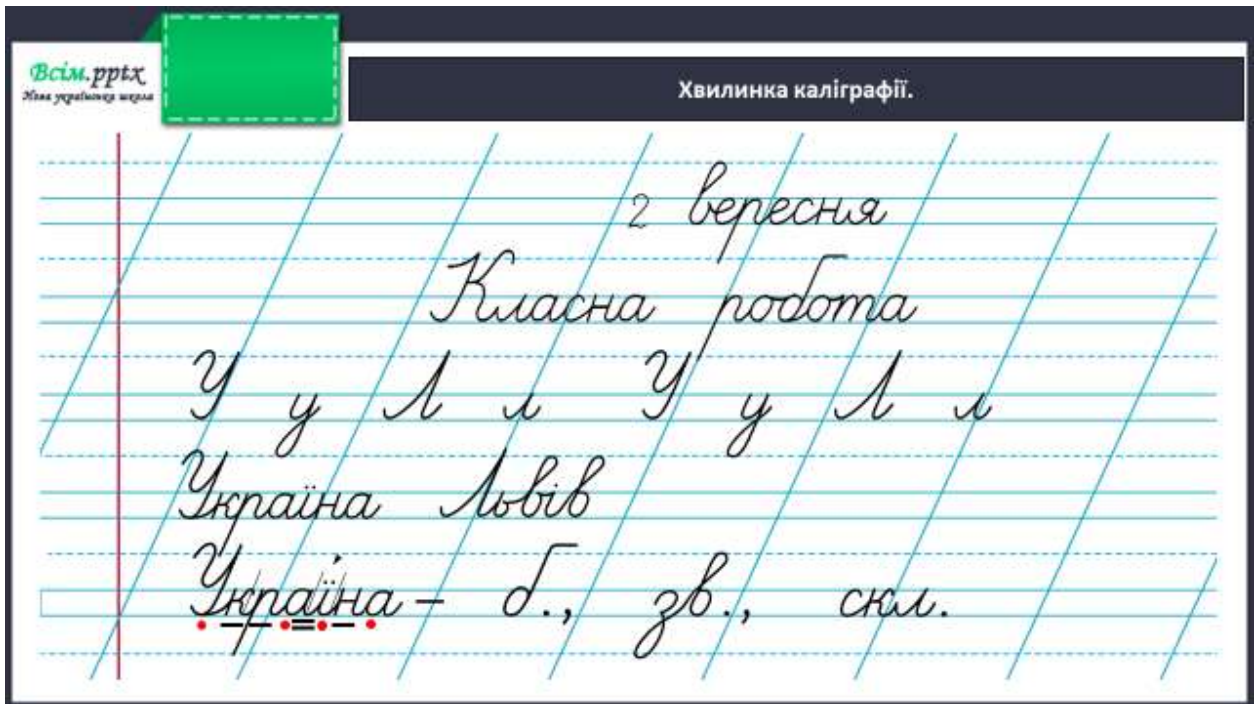 Всім.pptx
Нова українська школа
Хвилинка каліграфії.
2 вересня
Класна робота
У у Л л У у Л л
Україна Львів
Украї́на – б., зв., скл.